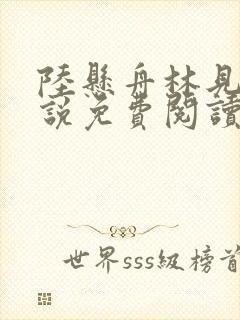 陸懸舟林見
說免費閱讀
世界sss級榜首